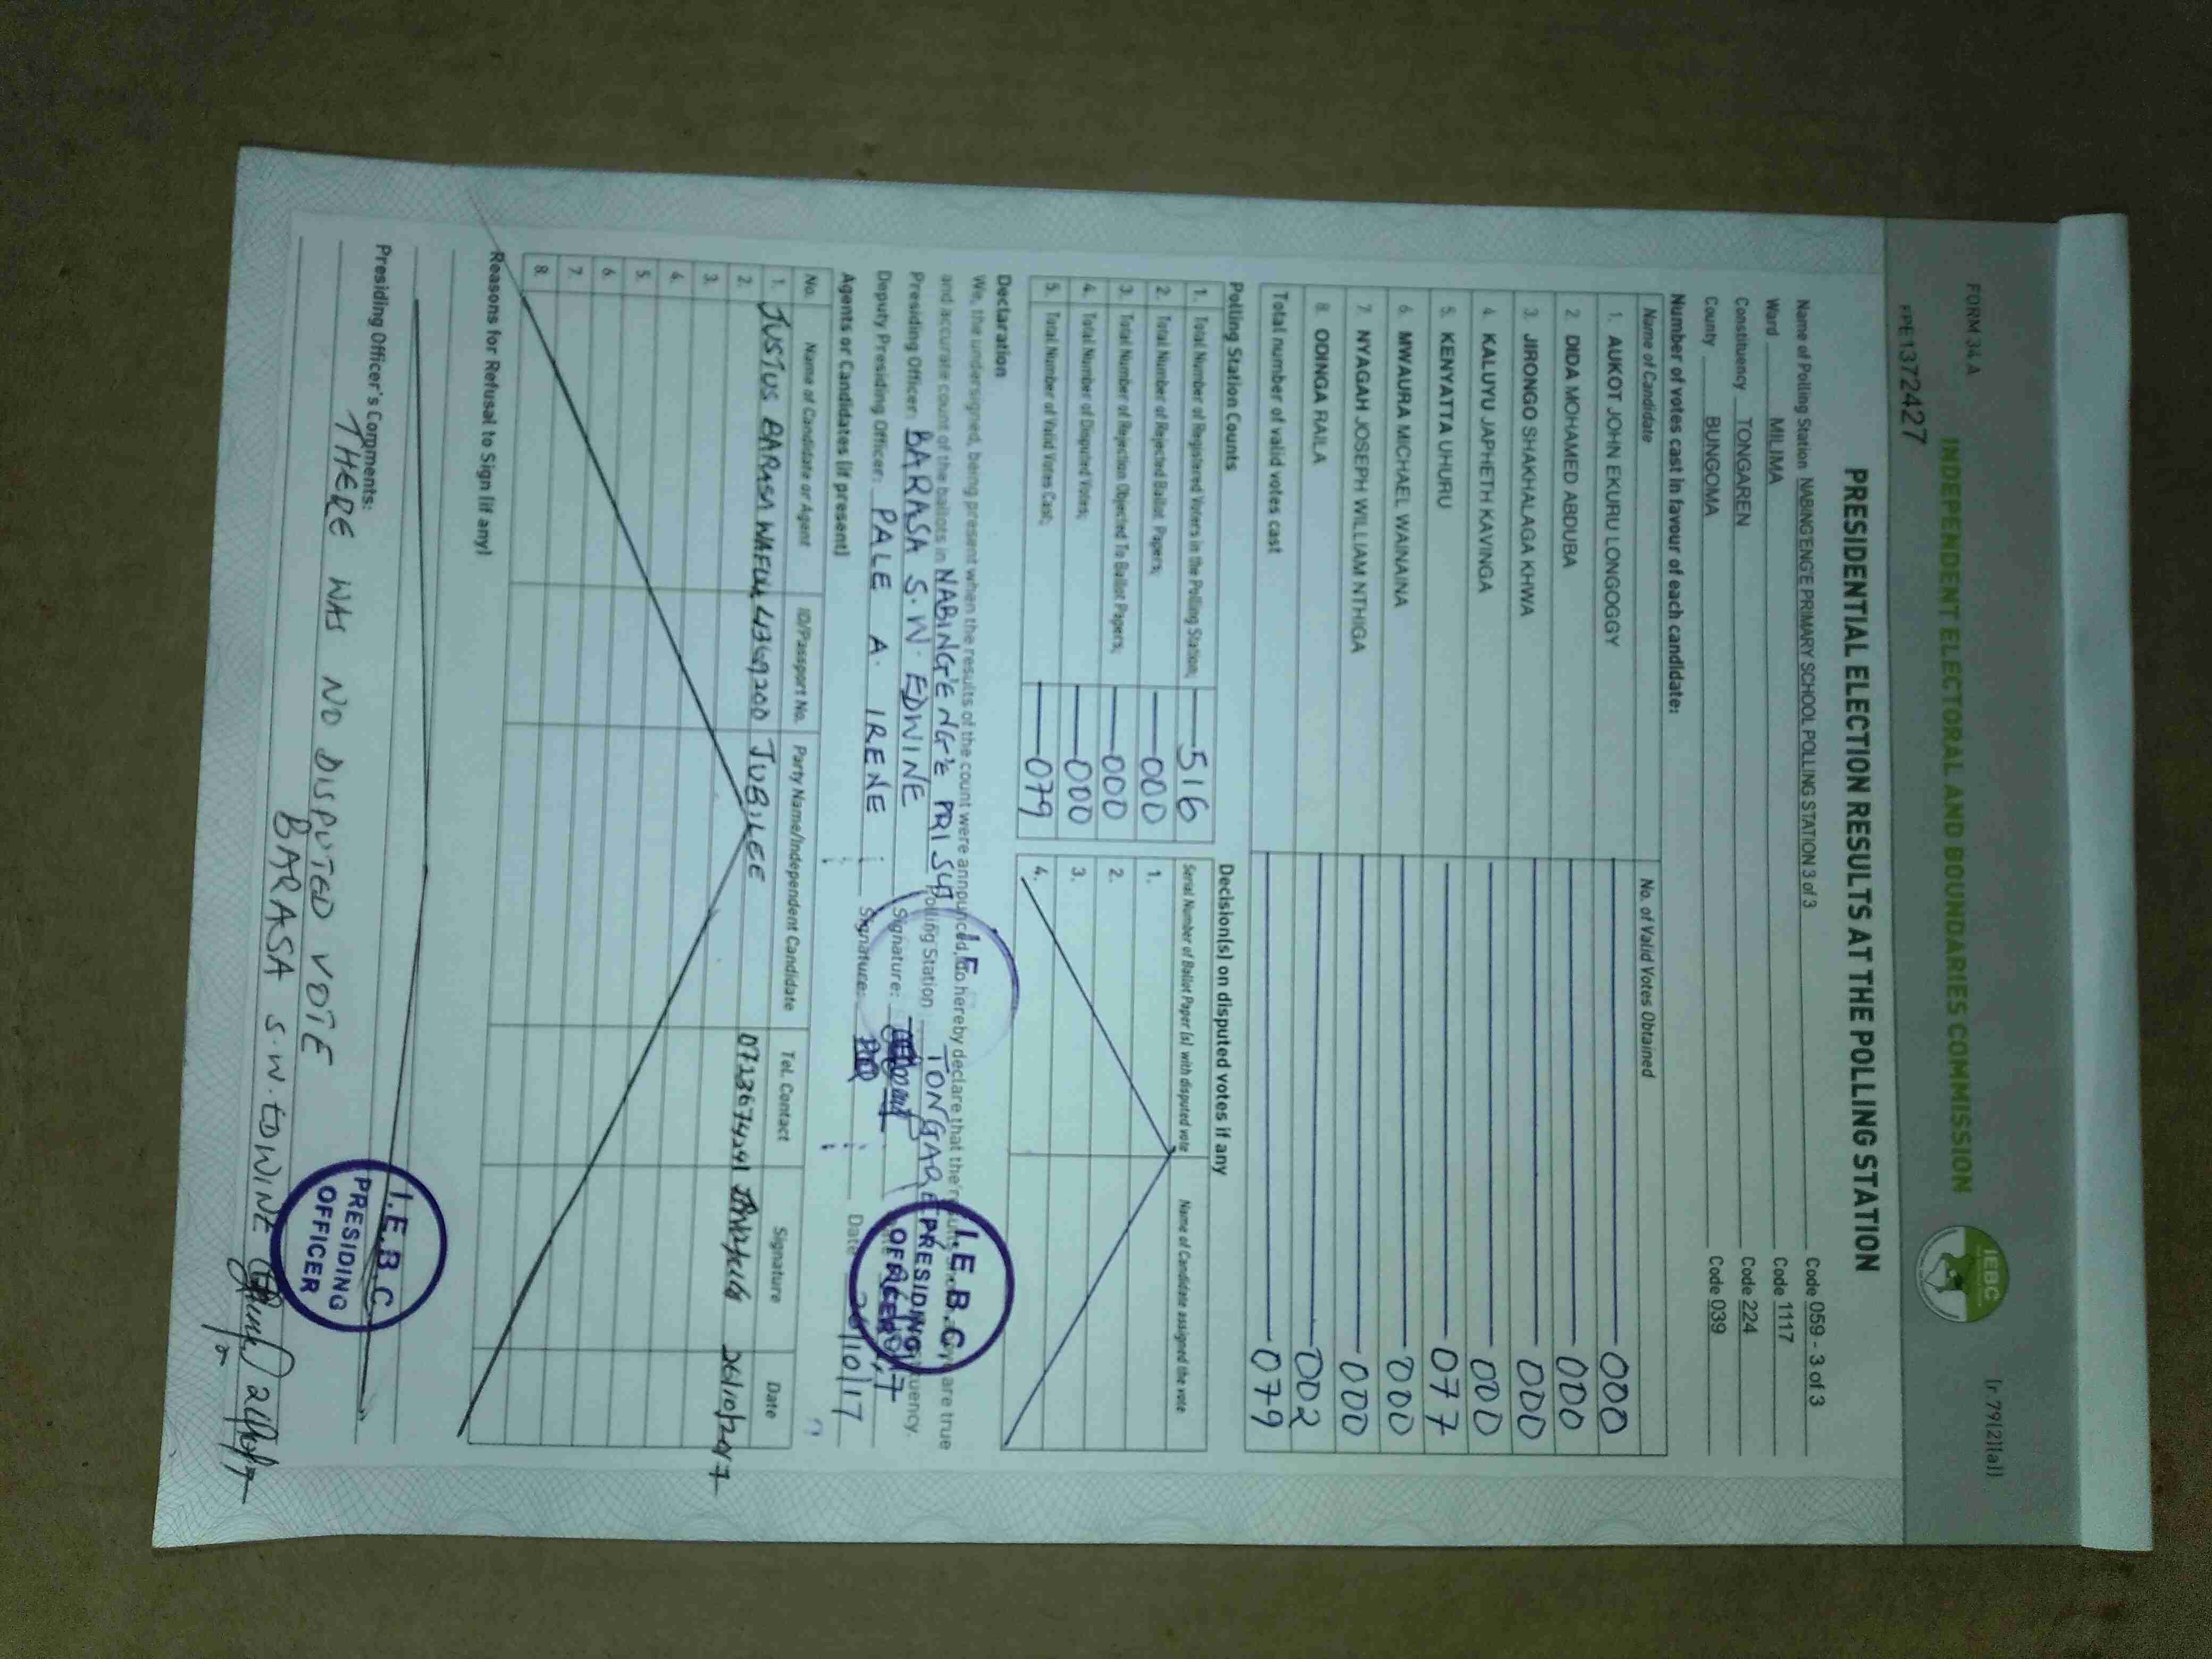 FORM 34A
[r 79(2)(a)]
INDEPENDENT ELECTORAL AND BOUNDARIES COMMISSION
IEBC
PE1372427
PRESIDENTIAL ELECTION RESULTS AT THE POLLING STATION
Name of Polling Station NABING'ENG'E PRIMARY SCHOOL POLLING STATION 3 of 3 Code 059 - 3 of 3
Ward MILIMA Code 1117
Constituency TONGAREN Code 224
County BUNGOMA Code 039
Number of votes cast in favour of each candidate:
Name of Candidate No. of Valid Votes Obtained
1. AUKOT JOHN EKURU LONGOGGY 000
2. DIDA MOHAMED ABDUBA 000
3. JIRONGO SHAKHALAGA KHWA 000
4. KALUYU JAPHETH KAVINGA 000
5. KENYATTA UHURU 077
6. MWAURA MICHAEL WAINAINA 000
7. NYAGAH JOSEPH WILLIAM NTHIGA 000
8. ODINGA RAILA 002
Total number of valid votes cast 079
Polling Station Counts
1. Total Number of Registered Voters in the Polling Station; 516
2. Total Number of Rejected Ballot Papers; 000
3. Total Number of Rejection Objected To Ballot Papers; 000
4. Total Number of Disputed Votes; 000
5. Total Number of Valid Votes Cast; 079
Decision(s) on disputed votes if any
Serial Number of Ballot Paper (s) with disputed vote Name of Candidate assigned the vote
1.
2.
3.
4.
Declaration
We, the undersigned, being present when the results of the count were announced, do hereby declare that the results shown above are true
and accurate count of the ballots in NABING'ENG'E PRI SCH Polling Station TONGAREN Constituency.
Presiding Officer: BARASA S.W. EDWINE Signature:
Deputy Presiding Officer: PALE A. IRENE Signature: Date 26/10/17
I.E.B.C.
PRESIDING
OFFICER
Agents or Candidates (if present)
No. Name of Candidate or Agent ID/Passport No. Party Name/Independent Candidate Tel. Contact Signature Date
1. JUSTUS BARASA WAFULA 4369200 JUBILEE 0713674241 26/10/2017
2.
3.
4.
5.
6.
7.
8.
Reasons for Refusal to Sign (if any)
Presiding Officer's Comments:
THERE WAS NO DISPUTED VOTE
BARASA S.W. EDWINE
I.E.B.C.
PRESIDING
OFFICER